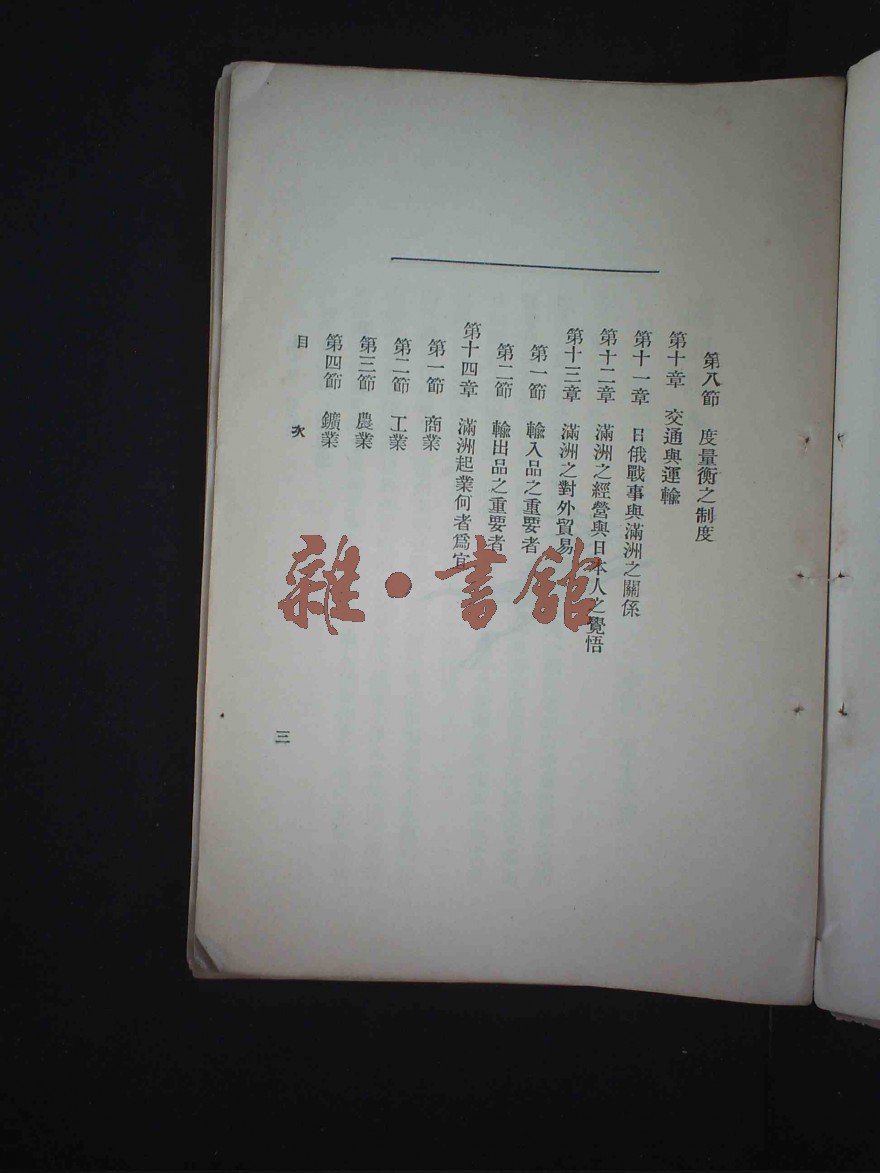 第八節　度量衡之制度
第十章　交通與運輸
第十一章　日俄戰事與滿洲之關係
第十二章　滿洲之經營與日本人之覺悟
第十三章　滿洲之對外貿易
第一節　輸入品之重要者
第二節　輸出品之重要者
第十四章　滿洲起業何者爲宜
第一節　商業
第二節　工業
第三節　農業
第四節　鑛業
目次
三
雜·書館